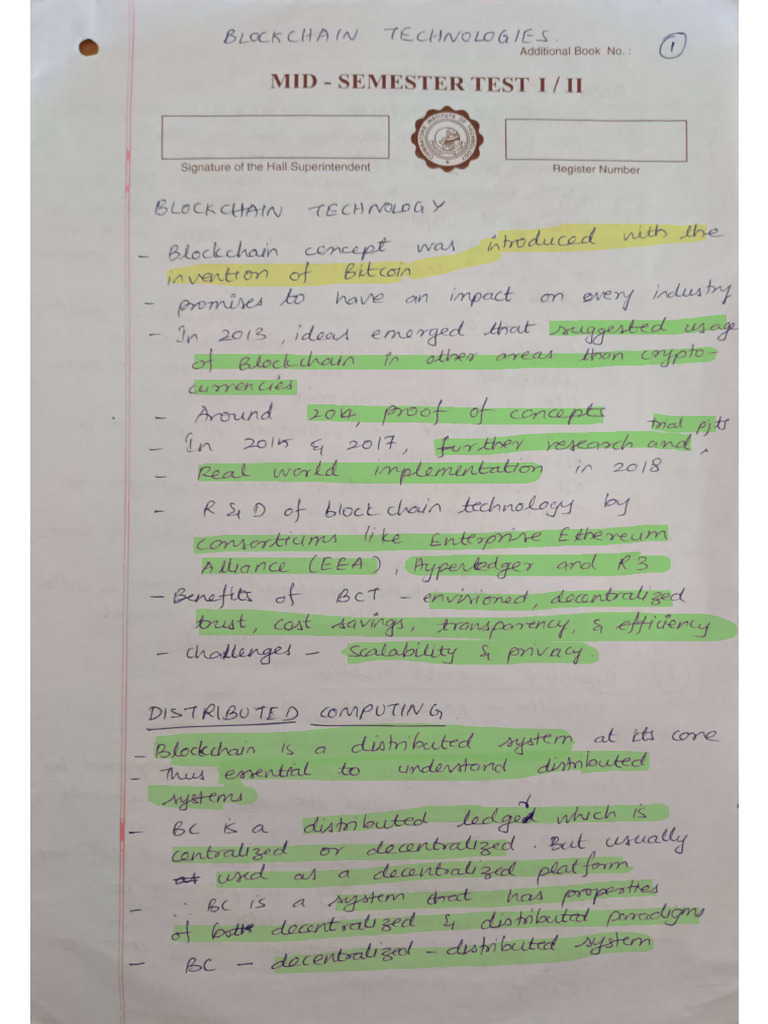 BLOCKCHAIN TECHNOLOGIES.
Additional Book No. :
1
MID - SEMESTER TEST I / II
Signature of the Hall Superintendent
Register Number
BLOCKCHAIN TECHNOLOGY
- Blockchain concept was introduced with the
invention of Bitcoin
- promises to have an impact on every industry
- In 2013, ideas emerged that suggested usage
of Blockchain in other areas than crypto-
currencies.
- Around 2014, proof of concepts
trial pjts
- In 2015 & 2017, further research and,
- Real world implementation in 2018
- R & D of block chain technology by
consortiums like Enterprise Ethereum
Alliance (EEA), Hyperledger and R3
- Benefits of BCT - envisioned, decentralized
trust, cost savings, transparency, & efficiency
- challenges - scalability & privacy.
DISTRIBUTED COMPUTING
- Blockchain is a distributed system at its core
- Thus essential to understand distributed
systems
- BC is a distributed ledger which is
centralized or decentralized. But usually
used as a decentralized platform
- ∴ BC is a system that has properties
of both decentralized & distributed paradigms
- BC - decentralized - distributed system